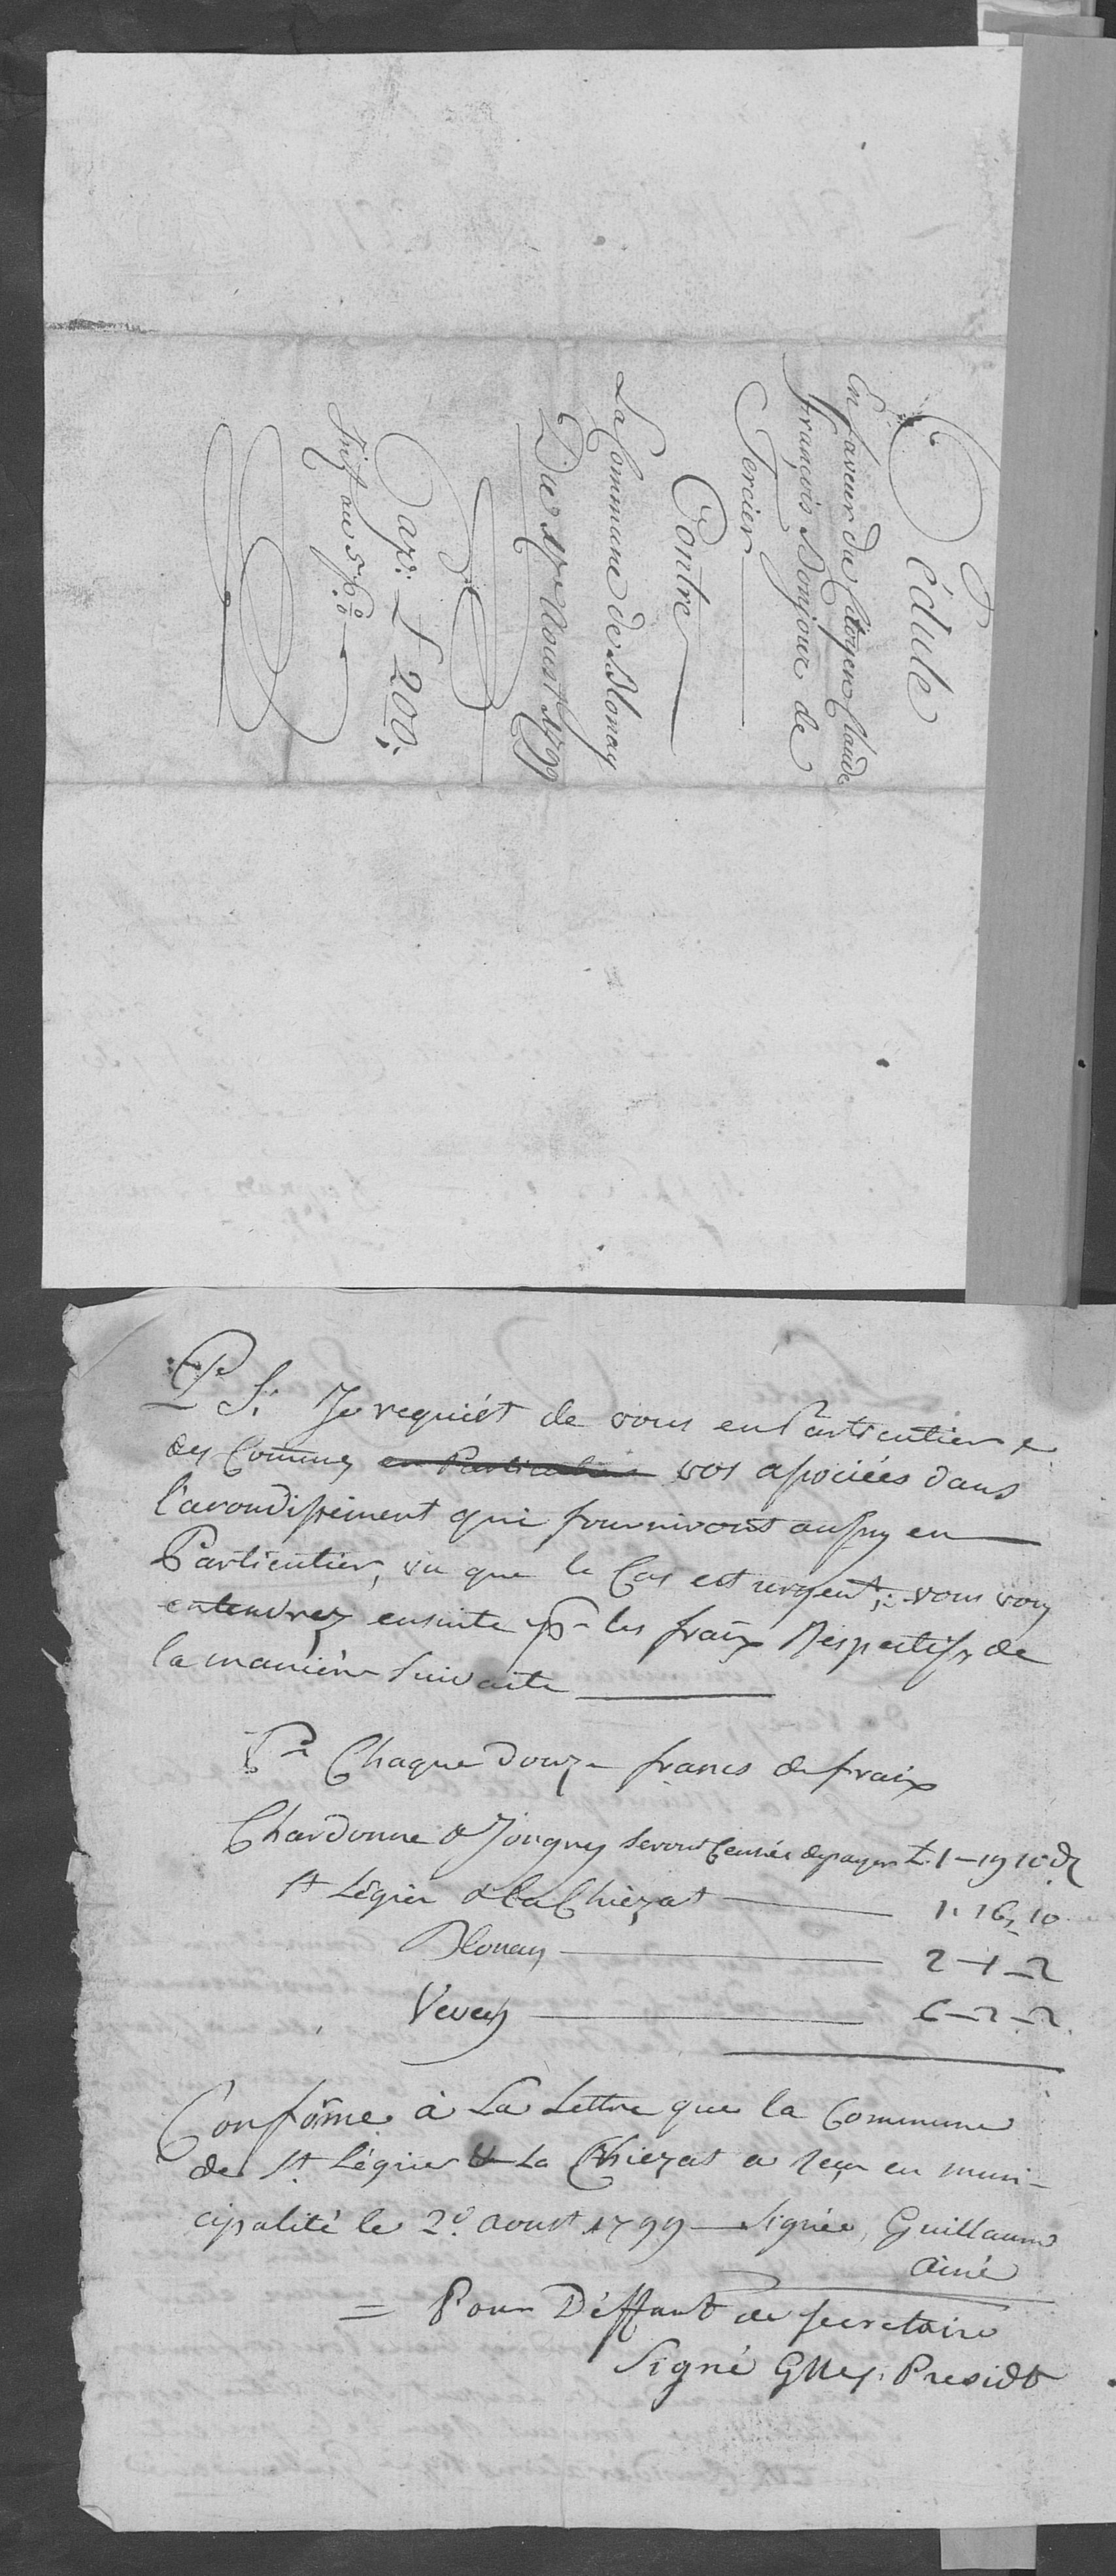 Cédule
En faveur du Citoyen Claude
François Bonjour de
Tercier
Contre
La Commune de Blonay
Du 17e Aoust 1799
Cap: L 200:
Inst au 5 p% 
P S. Je requiert de vous en Particulier &
des Comunes en Particulier vos associées dans
l'arondissement qui fourniront aussy en
Particulier, vu que le Cas est urgent; vous vous
entendrez ensuite pr les fraix Respectifs de
la manière suivante
Pr Chaque douze francs de fraix
Chardonne & Jongny seront Censés de payer L. 1-19 10 d
St Légier & la Chiézat 1. 16. 10
Blonay 2-1-2
Vevey 6-2-2
Confôrme à La Lettre que la Commune
de St Légier & La Chiezat a reçu en muni-
cipalité le 2d. aoust 1799 signée, Guillaume
Ainé
= Pour Déffaut de secretaire
Signé Presidt